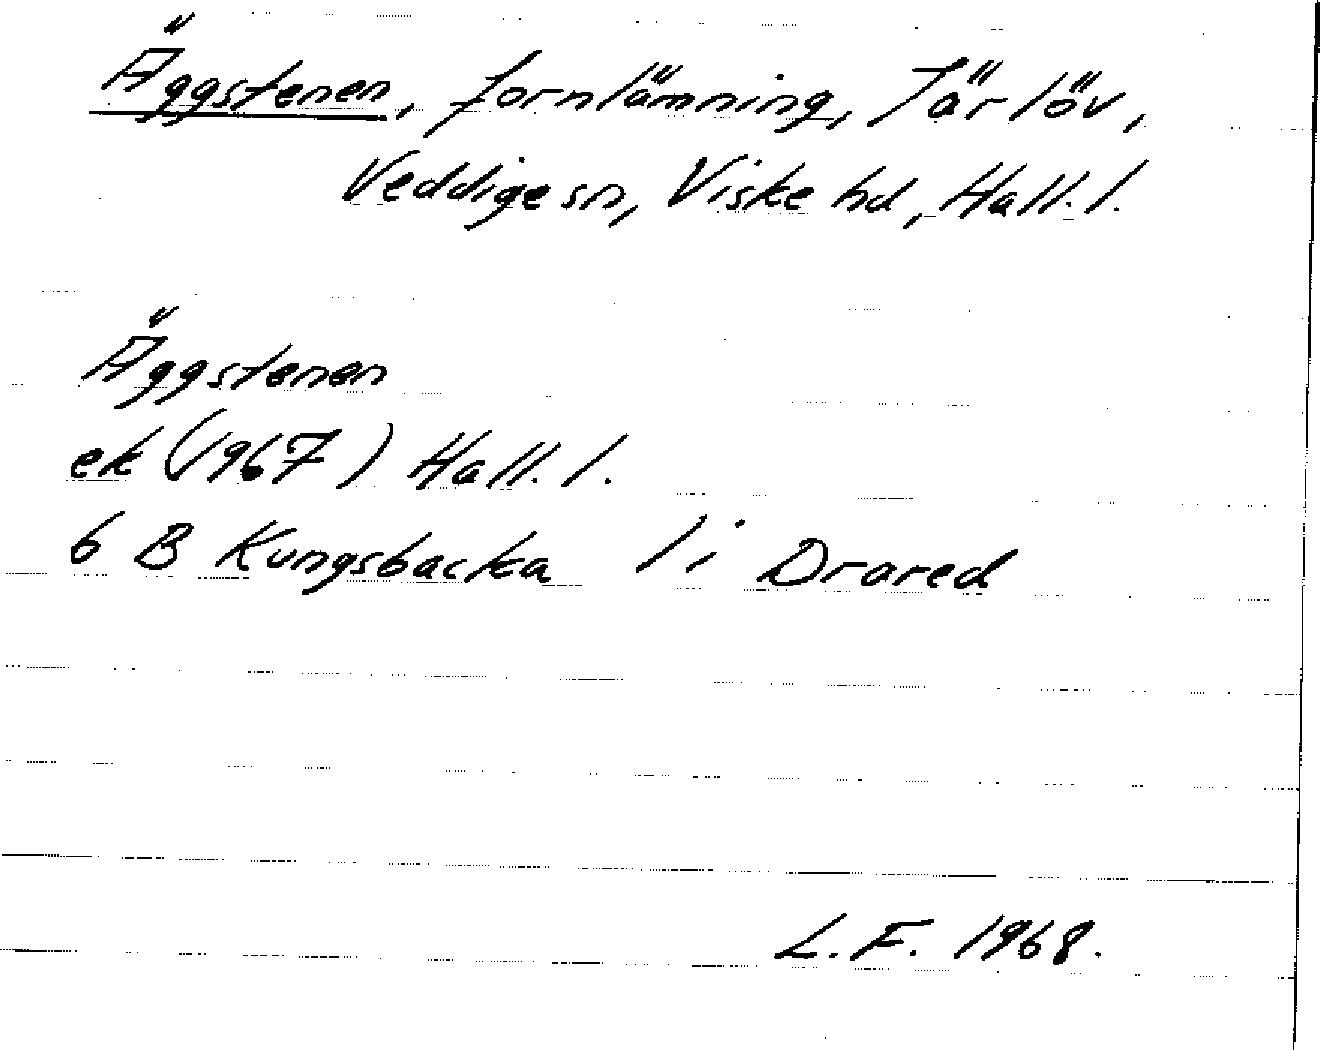 Äggstenen, fornlämning, Järlöv,
Veddige sn, Viske hd, Hall. l.
Äggstenen
ek (1967) Hall. l.
6 B Kungsbacka 1 i Drared
L. F. 1968.